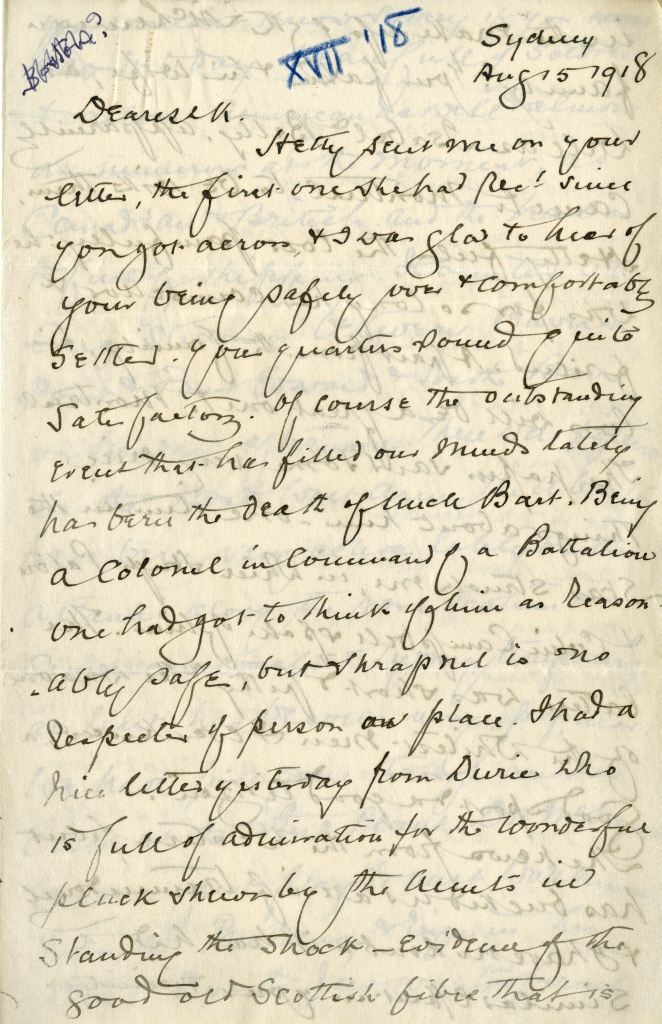 XVII '18
Sydney
Aug 15 1918
Dearest K.
Hetty sent me on your
letter, the first one she had Recd since
you got across, & I was glad to hear of
your being safely over & comfortably
settled. Your quarters sound quite
satisfactory. Of course the outstanding
event that has filled our minds lately
has been the death of Uncle Bart. Being
a Colonel in Command of a Battalion
one had got to think of him as Reason-
-ably safe, but shrapnel is no
respecter of person or place. I had a
nice letter yesterday from Durie who
is full of admiration for the wonderful
pluck shewn by the Aunts in
standing the shock - Evidence of the
good old Scottish fibre that is